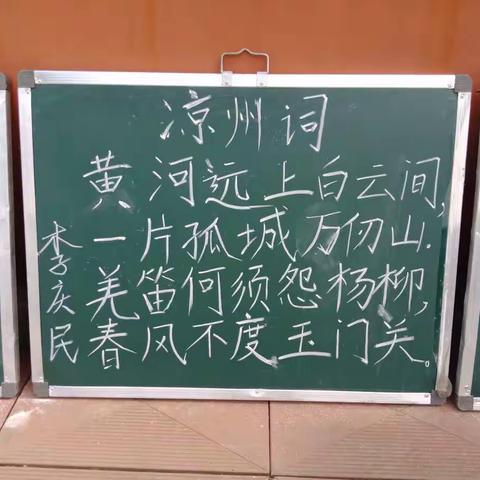 凉州词
黄河远上白云间，
一片孤城万仞山.
羌笛何须怨杨柳，
春风不度玉门关。
李庆民